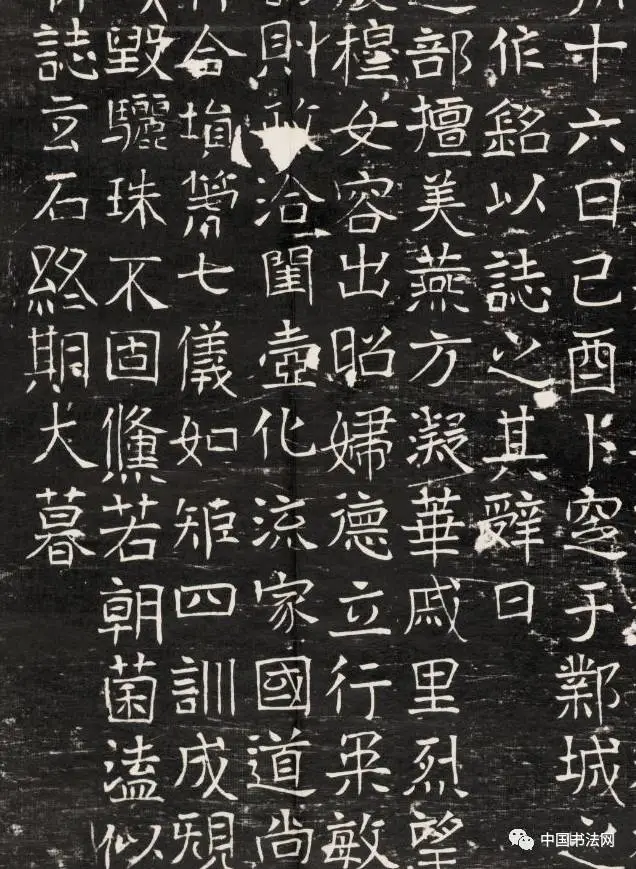 十六日己酉卜窆于鄴城之
作銘以誌之其辭曰
部擅美燕方凝華戚里烈望
穆女容出昭婦德立行柔敏
則洽閨壼化流家國道尚
合塤七儀如矩四訓成規
毀驪珠不固儵若朝菌溘似
誌玄石終期大暮
中国书法网